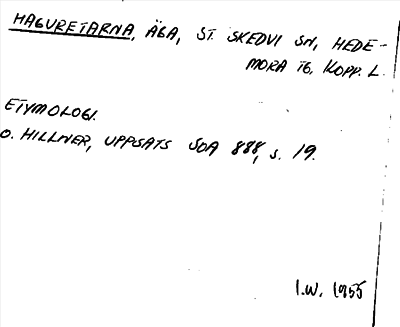 HAGURETARNA, ÄGA, ST. SKEDVI SN, HEDE-
MORA TG, KOPP. L.
ETYMOLOGI.
O. HILLNER, UPPSATS SOA 888, S. 19.
I.W. 1955